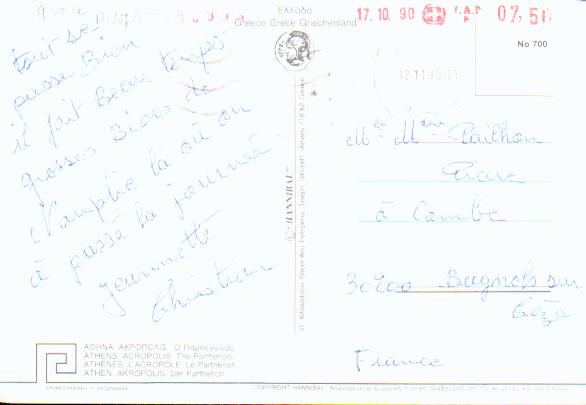 Grèce
Ελλάδα
Greece Grece Griechenland
17.10.90
07,50
No 700
12.11.90
Tout se
passe Bien
il fait Beau temps
grosses Bises de
Nauplie là ou on
à passé la journée
Jeannette
Christian
Mr et Mme Pailhon
Pierre
à Combe
30200 Bagnols sur
Cèze
France
© "HANNIBAL"
ΑΘΗΝΑ ΑΚΡΟΠΟΛΙΣ. Ο Παρθενώνας.
ATHENS ACROPOLIS. The Parthenon.
ATHENES L'ACROPOLE. Le Parthenon.
ATHEN. AKROPOLIS. Der Parthenon.
COPYRIGHT HANNIBAL